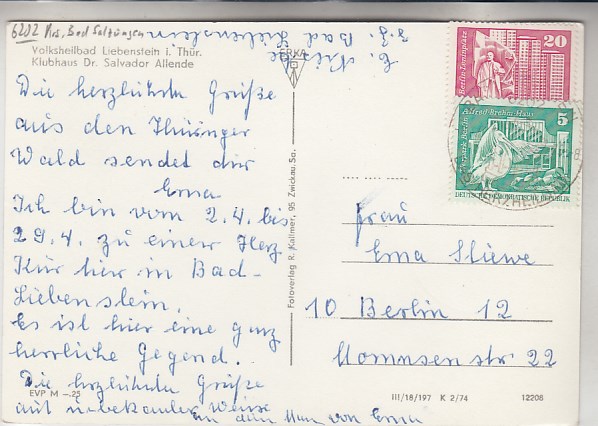 6202 Krs. Bad Salzungen
E. Nitzsche
z.Z. Bad Liebenstein
Volksheilbad Liebenstein i. Thür.
Klubhaus Dr. Salvador Allende
ERKA
Die herzlichste Grüße
aus den Thüringer
Wald sendet dir
Erna
Ich bin vom 2.4. bis
29.4. zu einer Herz
Kur hier in Bad-
Liebenstein.
Es ist hier eine ganz
herrliche Gegend.
Die herzlichste Grüße
auf unbekannter Weise
an dein Mann von Erna
EVP M –.25
Fotoverlag R. Kallmer, 95 Zwickau Sa.
20
Berlin-Leninplatz
5
Tierpark Berlin
Alfred-Brehm-Haus
DEUTSCHE DEMOKRATISCHE REPUBLIK
Frau
Erna Stiewe
10 Berlin 12
Mommsenstr. 22
III/18/197 K 2/74
12206